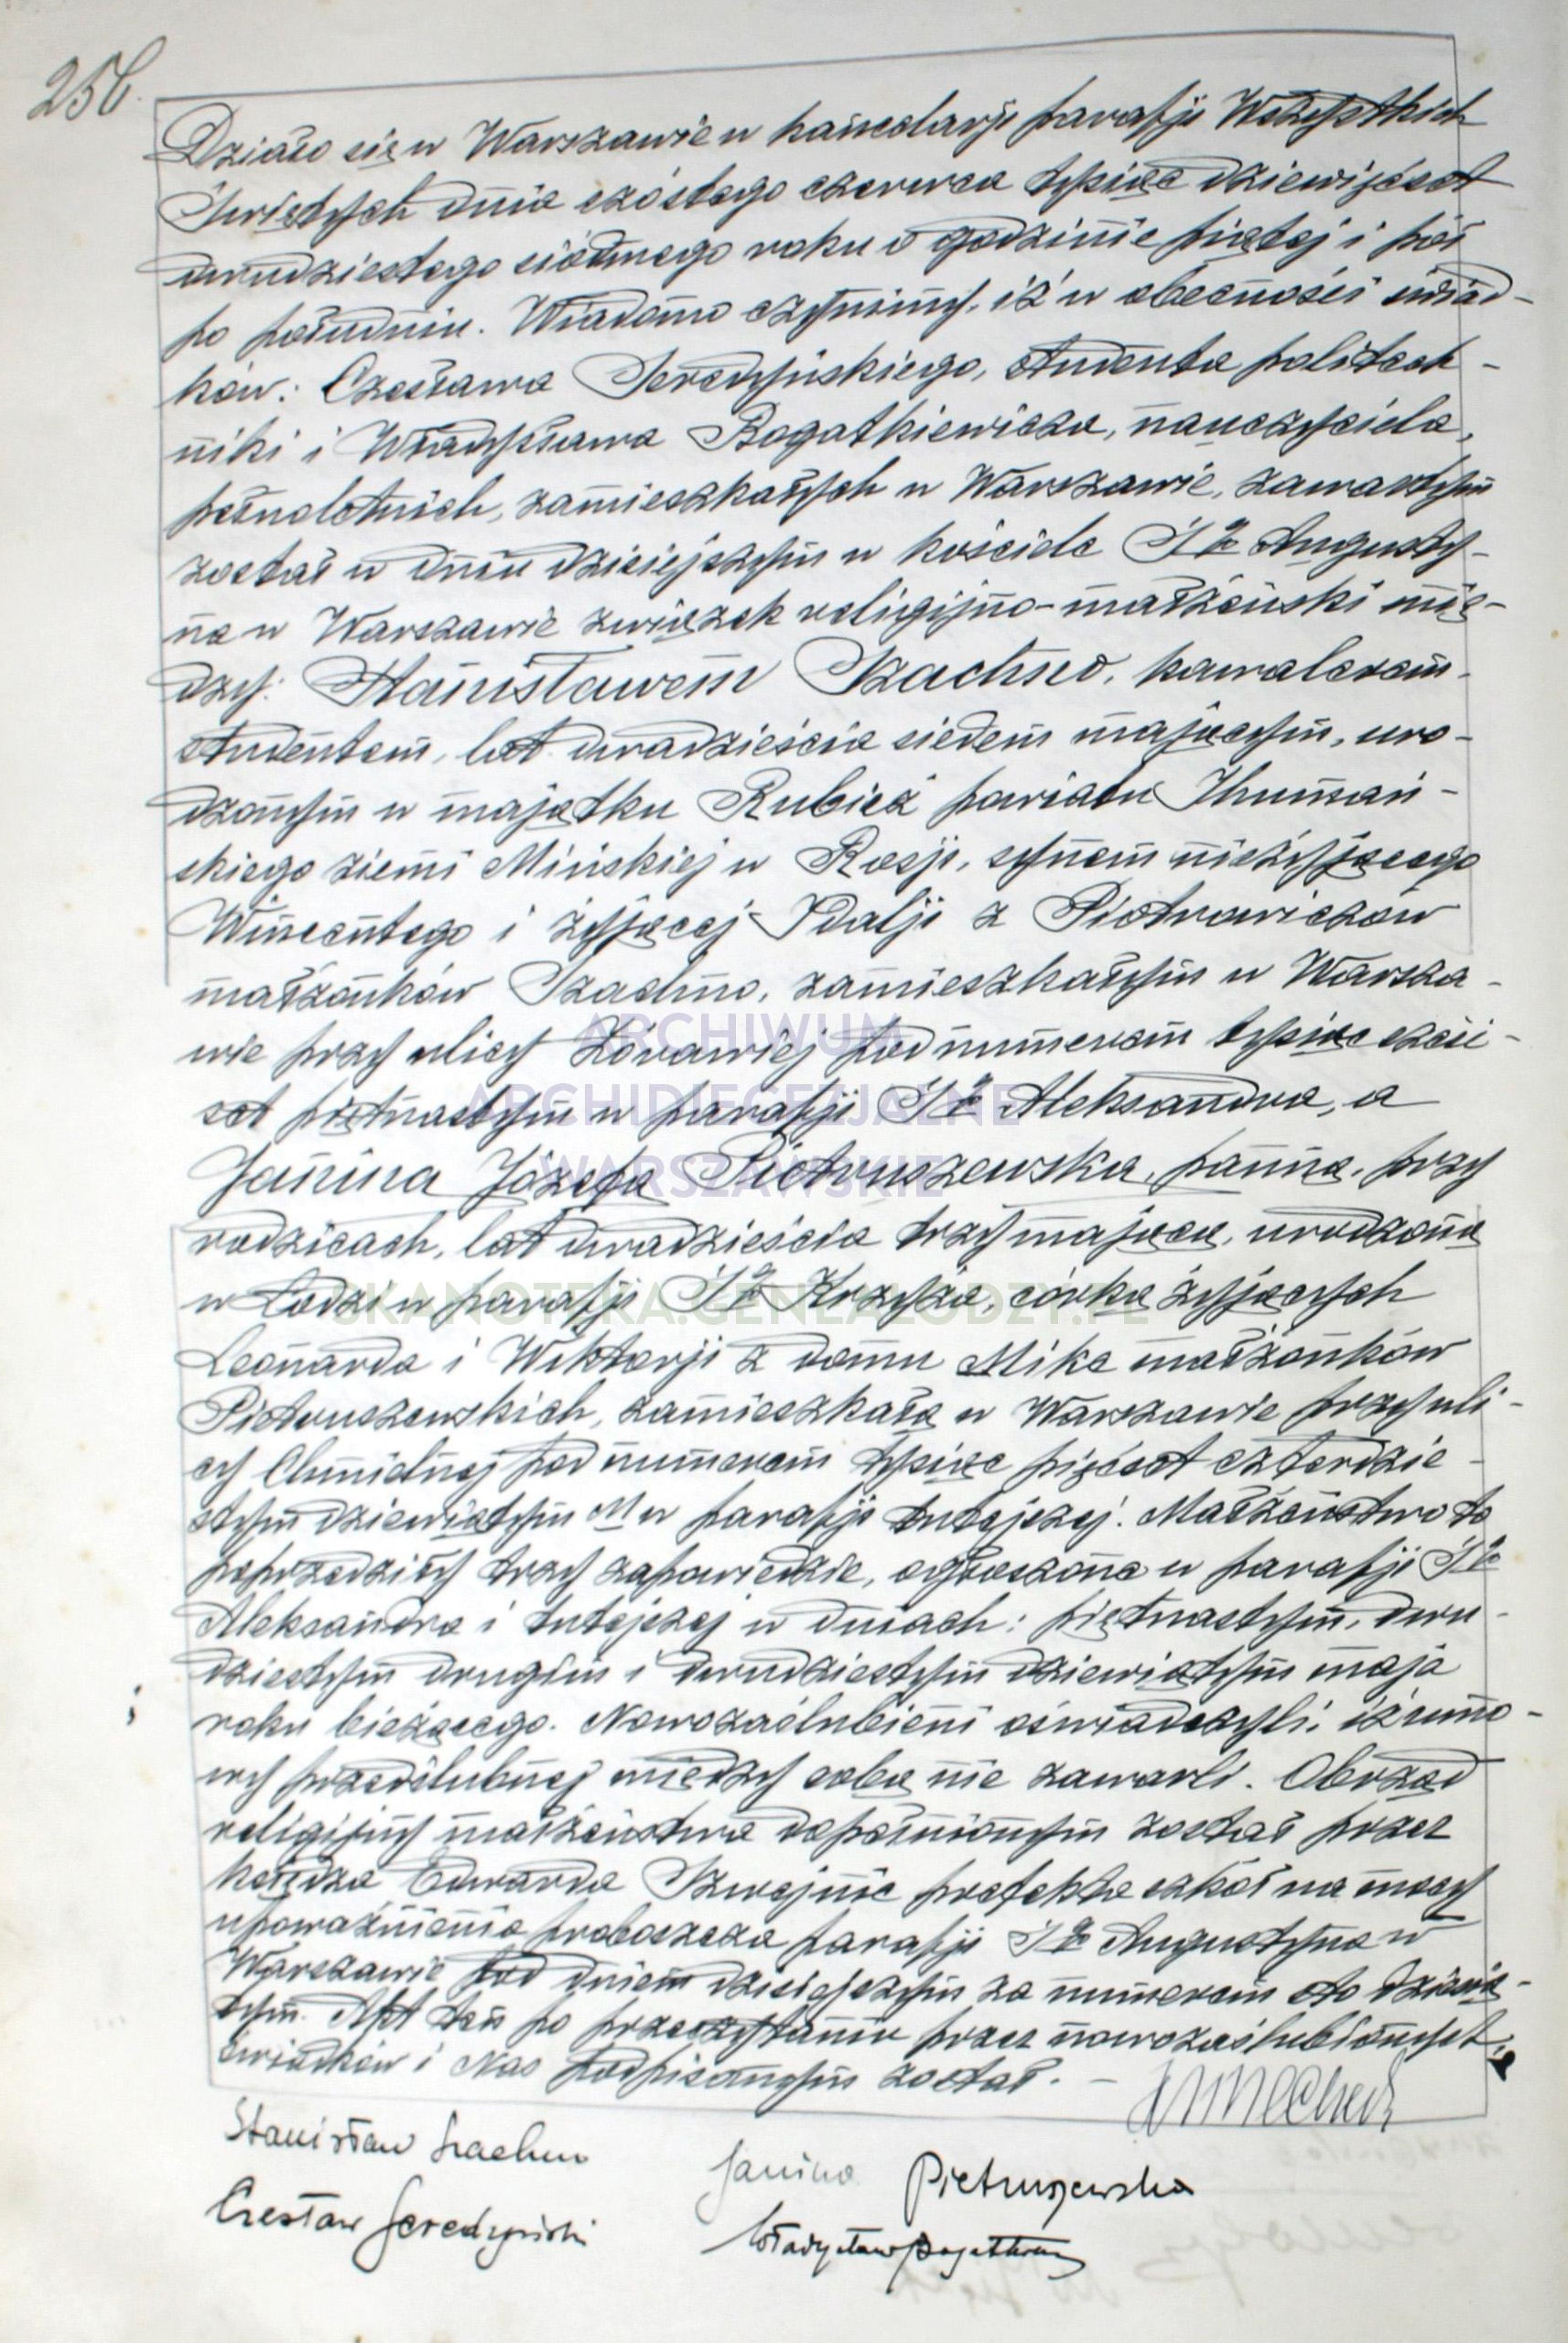 256.
Działo się w Warszawie w kancelarji parafji Wszystkich
Świętych dnia szóstego czerwca tysiąc dziewięćset
dwudziestego siódmego roku o godzinie piątej i pół
po południu. Wiadomo czynimy, iż w obecności świad-
ków: Czesława Seredyńskiego, studenta politech-
niki i Władysława Bogatkiewicza, nauczyciela,
pełnoletnich, zamieszkałych w Warszawie, zawartym
został w dniu dzisiejszym w kościele Śgo Augusty-
na w Warszawie związek religijno-małżeński mię-
dzy: Stanisławem Szachno, kawalerem,
studentem, lat dwadzieścia siedem mającym, uro-
dzonym w majątku Rubież powiatu Ihumań-
skiego ziemi Mińskiej w Rosji, synem nieżyjącego
Wincentego i żyjącej Idalji z Piotrowiczów
małżonków Szachno, zamieszkałym w Warsza-
wie przy ulicy Żórawiej pod numerem tysiąc sześć-
set piętnastym w parafji Śgo Aleksandra, a
Janiną Józefą Pietruszewską, panną, przy
rodzicach, lat dwadzieścia trzy mającą, urodzoną
w Łodzi w parafji Śgo Krzyża, córką żyjących
Leonarda i Wiktorji z domu Mike małżonków
Pietruszewskich, zamieszkałą w Warszawie przy uli-
cy Chmielnej pod numerem tysiąc pięćset czterdzie-
stym dziewiątym M w parafji tutejszej. Małżeństwo to
poprzedziły trzy zapowiedzie, ogłoszone w parafji Śgo
Aleksandra i tutejszej w dniach: piętnastym, dwu-
dziestym drugim i dwudziestym dziewiątym maja
roku bieżącego. Nowozaślubieni oświadczyli, iż umo-
wy przedślubnej między sobą nie zawarli. Obrząd
religijny małżeństwa dopełnionym został przez
księdza Edwarda Szwejnic prefekta szkół na mocy
upoważnienia proboszcza parafji Śgo Augustyna w
Warszawie pod dniem dzisiejszym za numerem sto dziewią-
tym. Akt ten po przeczytaniu przez nowozaślubionych,
świadków i Nas podpisanym został. —
Stanisław Szachno
Janina Pietruszewska
Czesław Seredyński
Władysław
ARCHIWUM
ARCHIDIECEZJALNE
WARSZAWSKIE
SKANOTEKA.GENEALODZY.PL